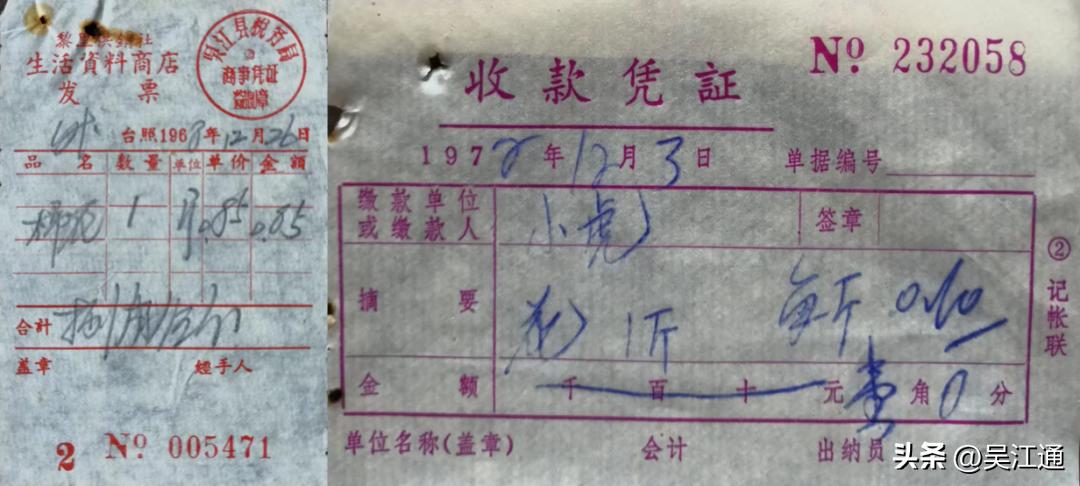 黎里供銷社
生活資料商店
发 票
吴江县税务局
商事凭证
台照1968年12月26日
品 名 数量 单位 单价 金額
1 0.85 0.85
合計
盖章 經手人
2 No 005471
收款凭証
No 232058
1978年12月3日 单据编号
缴款单位
或缴款人 小虎 签章
摘 要 1斤 每斤 0.10
金 額 千 百 十 元 壹 角 0 分
单位名称(盖章) 会计 出纳员
② 记帐联
头条 @吴江通